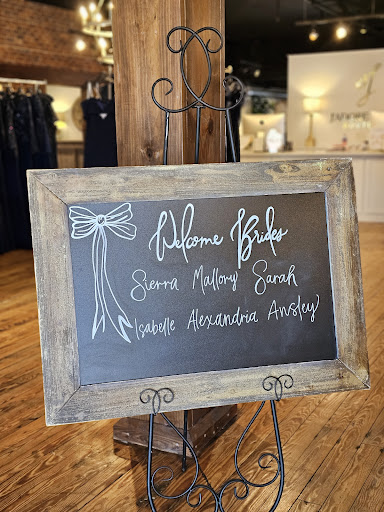 Welcome Brides
Sierra Mallory Sarah
Isabelle Alexandria Ansley